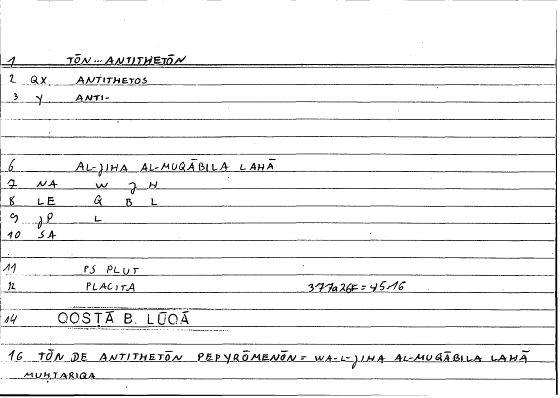 1 TŌN... ANTITHETŌN
2 QX ANTITHETOS
3 Y ANTI-
6 AL-JIHA AL-MUQĀBILA LAHĀ
7 NA W J H
8 LE Q B L
9 JP L
10 SA
11 PS PLUT
12 PLACITA 377a26F=45.16
14 QOSṬĀ B. LŪQĀ
16 TŌN DE ANTITHETŌN PEPYRŌMENŌN = WA-L-JIHA AL-MUQĀBILA LAHĀ
MUḤTARIQA